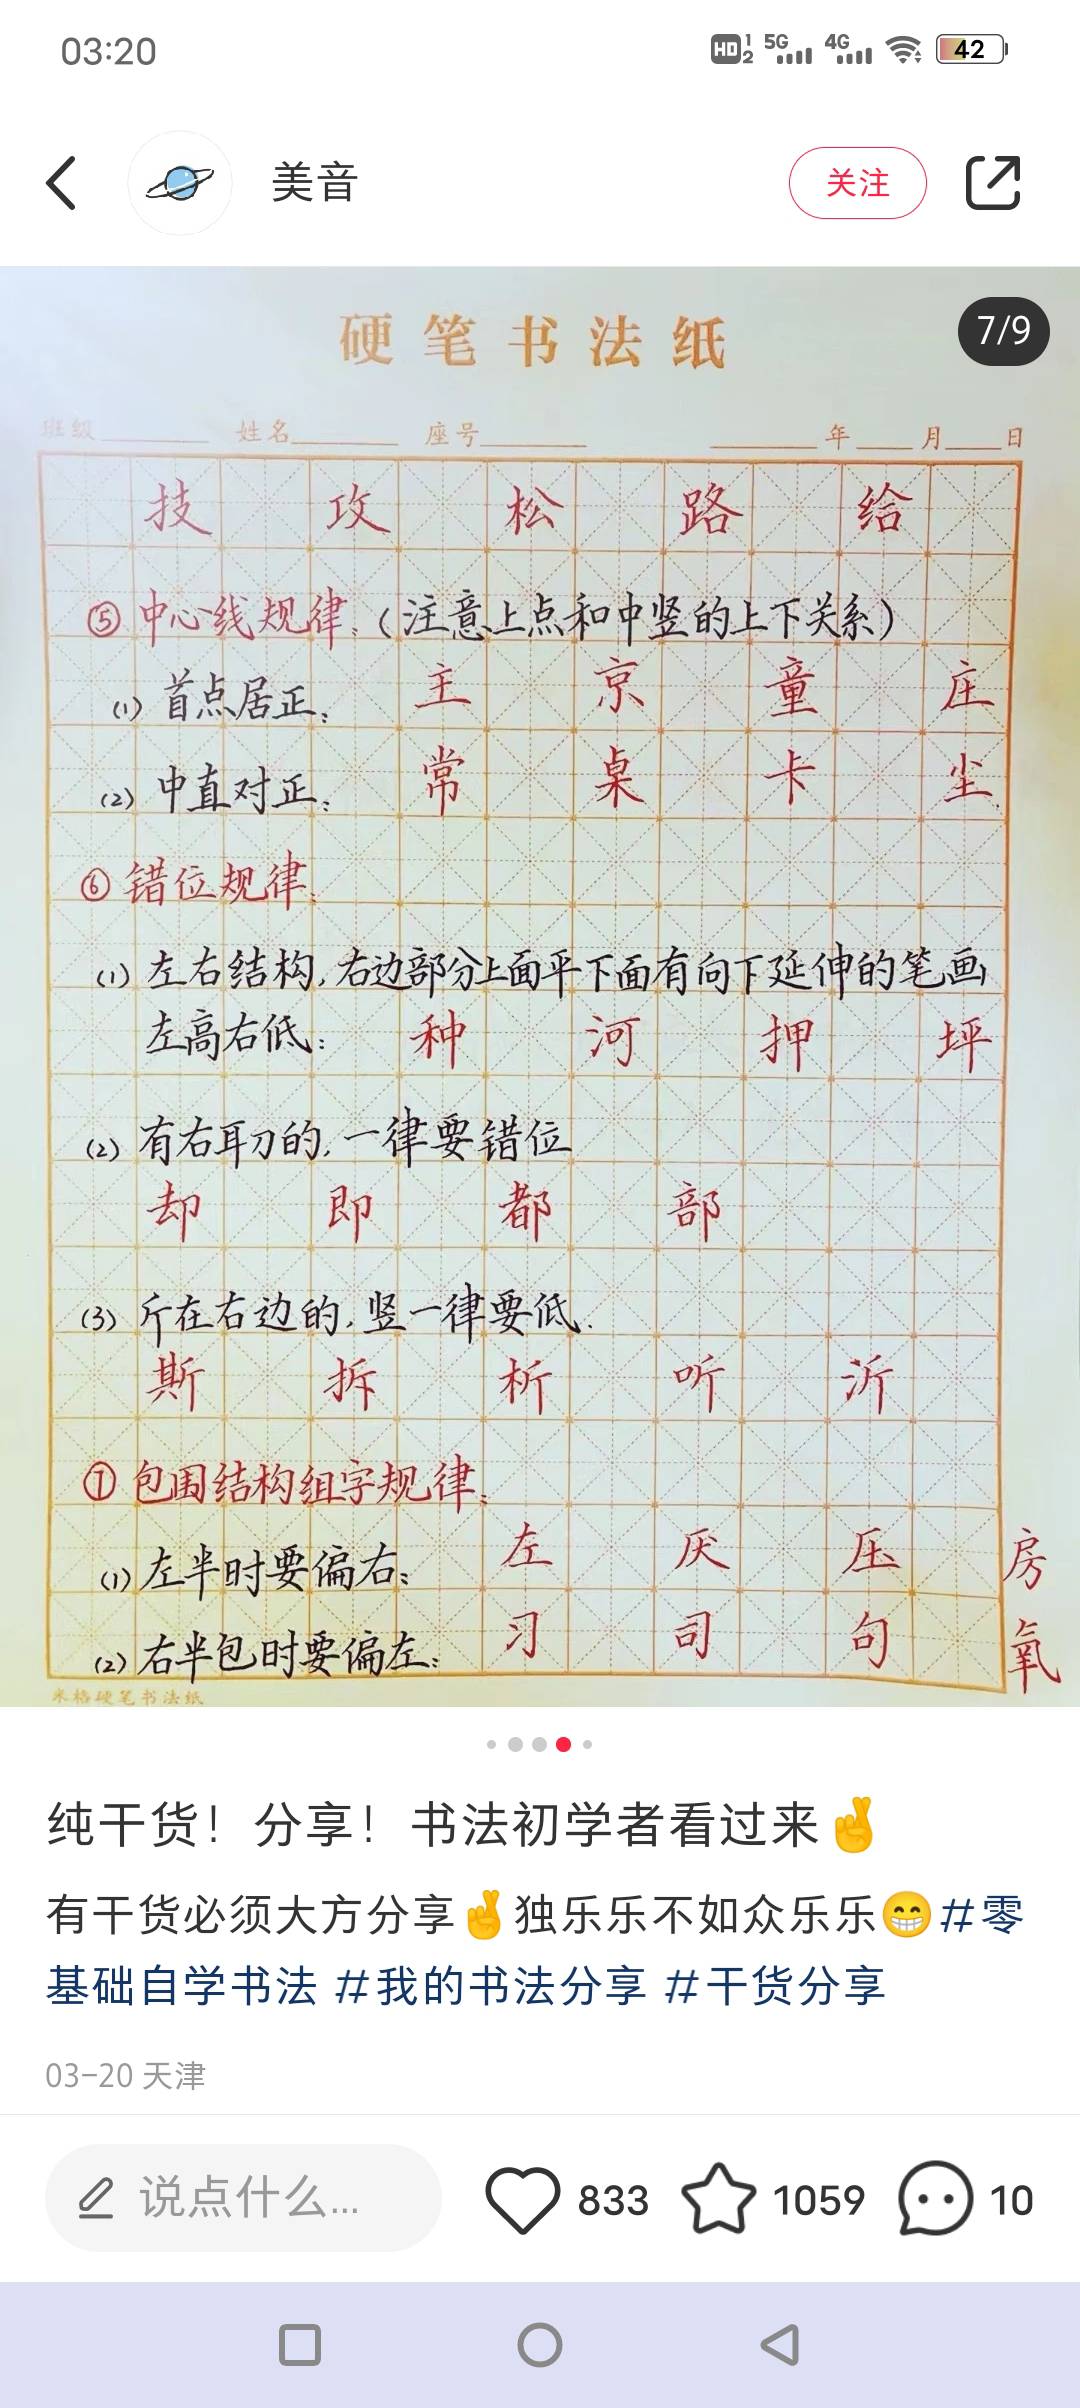 03:20
HD 1 2 5G 4G 42
美音
关注
7/9
硬笔书法纸
班级 姓名 座号 年 月 日
技 攻 松 路 给
⑤中心线规律:(注意上点和中竖的上下关系)
(1)首点居正: 主 京 童 庄
(2)中直对正: 常 桌 卡 尘
⑥错位规律:
(1)左右结构,右边部分上面平下面有向下延伸的笔画
左高右低: 种 河 押 坪
(2)有右耳刀的,一律要错位
却 即 都 部
(3)斤在右边的,竖一律要低.
斯 拆 析 听 沂
⑦包围结构组字规律:
(1)左半时要偏右: 左 厌 压 房
(2)右半包时要偏左: 习 司 句 氧
米格硬笔书法纸
纯干货!分享!书法初学者看过来✌️
有干货必须大方分享✌️独乐乐不如众乐乐😁#零
基础自学书法 #我的书法分享 #干货分享
03-20 天津
说点什么... 833 1059 10